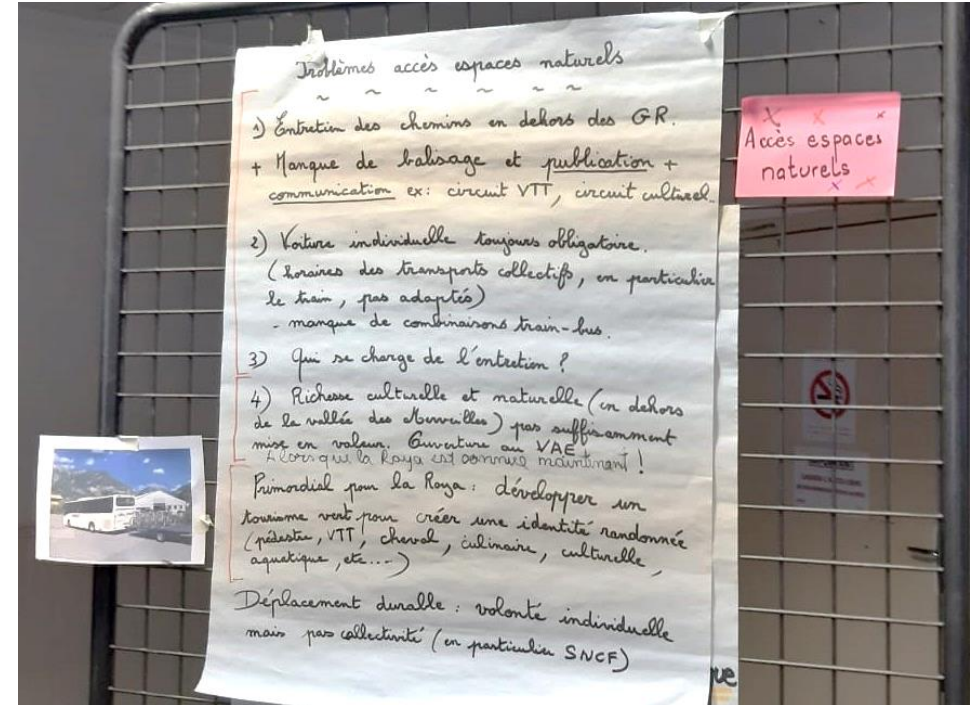 Problèmes accès espaces naturels
~ ~ ~ ~ ~ ~
1) Entretien des chemins en dehors des GR.
+ Manque de balisage et publication +
communication ex: circuit VTT, circuit culturel.
2) Voiture individuelle toujours obligatoire.
(horaires des transports collectifs, en particulier
le train, pas adaptés)
- manque de combinaisons train-bus.
3) Qui se charge de l'entretien ?
4) Richesse culturelle et naturelle (en dehors
de la vallée des Merveilles) pas suffisamment
mise en valeur. Ouverture au VAE
Alors que la Roya est connue maintenant !
Primordial pour la Roya : développer un
tourisme vert pour créer une identité randonnée
(pédestre, VTT, cheval, culinaire, culturelle,
aquatique, etc....)
Déplacement durable : volonté individuelle
mais pas collectivité (en particulier SNCF)
Accès espaces
naturels